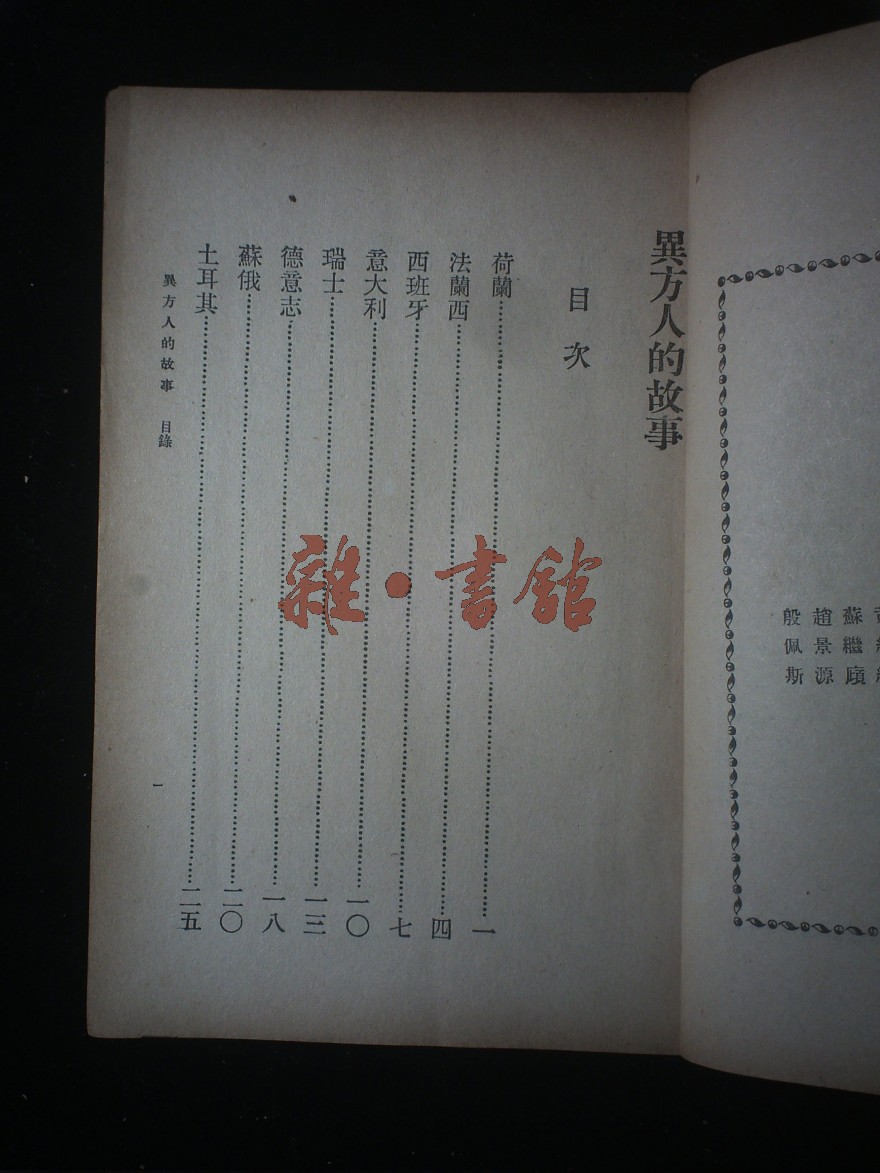 殷佩斯
趙景源
蘇繼廎
異方人的故事
目次
荷蘭……一
法蘭西……四
西班牙……七
意大利……一〇
瑞士……一三
德意志……一八
蘇俄……二〇
土耳其……二五
異方人的故事 目錄
一
雜·書館